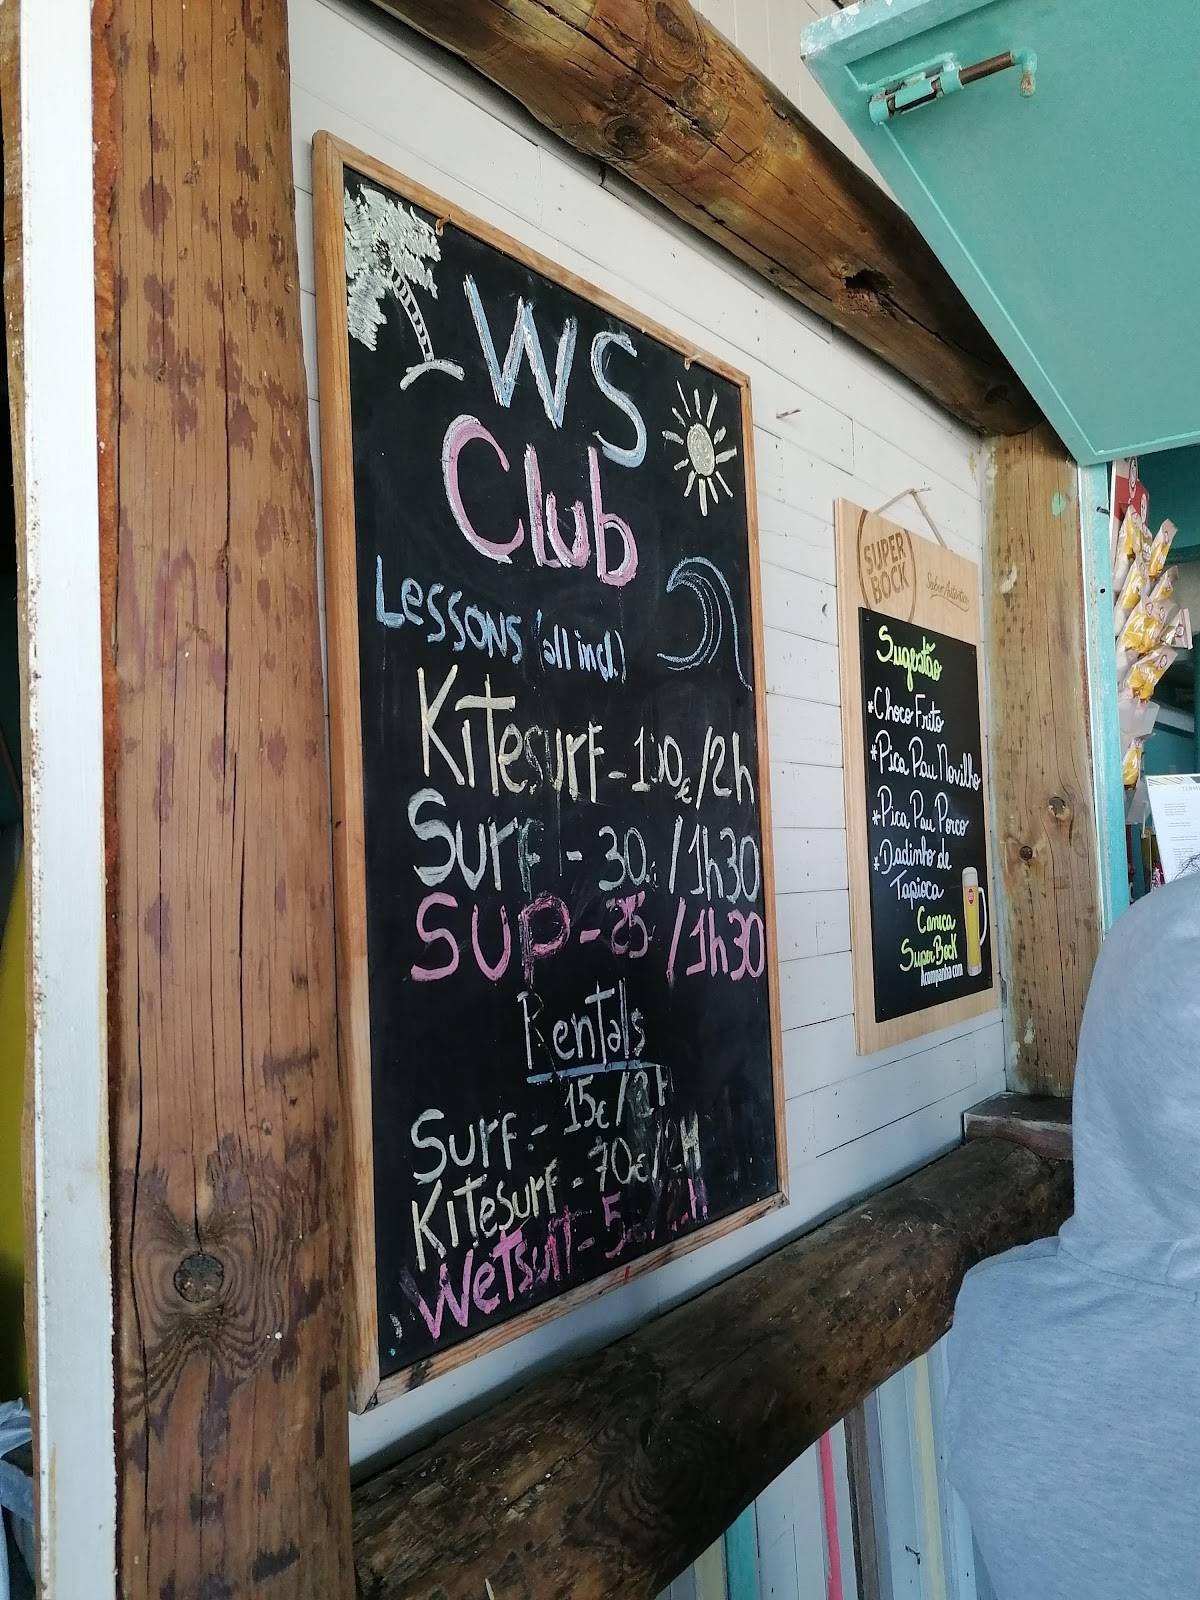 WS
Club
Lessons (all incl.)
Kitesurf - 100€/2h
Surf - 30€/1h30
SUP - 25/1h30
Rentals
Surf - 15€/2H
Kitesurf - 70€/2H
Wetsuit - 5€
SUPER
BOCK
Sabor Autêntico
Sugestão
*Choco Frito
*Pica Pau Novilho
*Pica Pau Porco
*Dadinho de
Tapioca
Caneca
Super Bock
Acompanha com